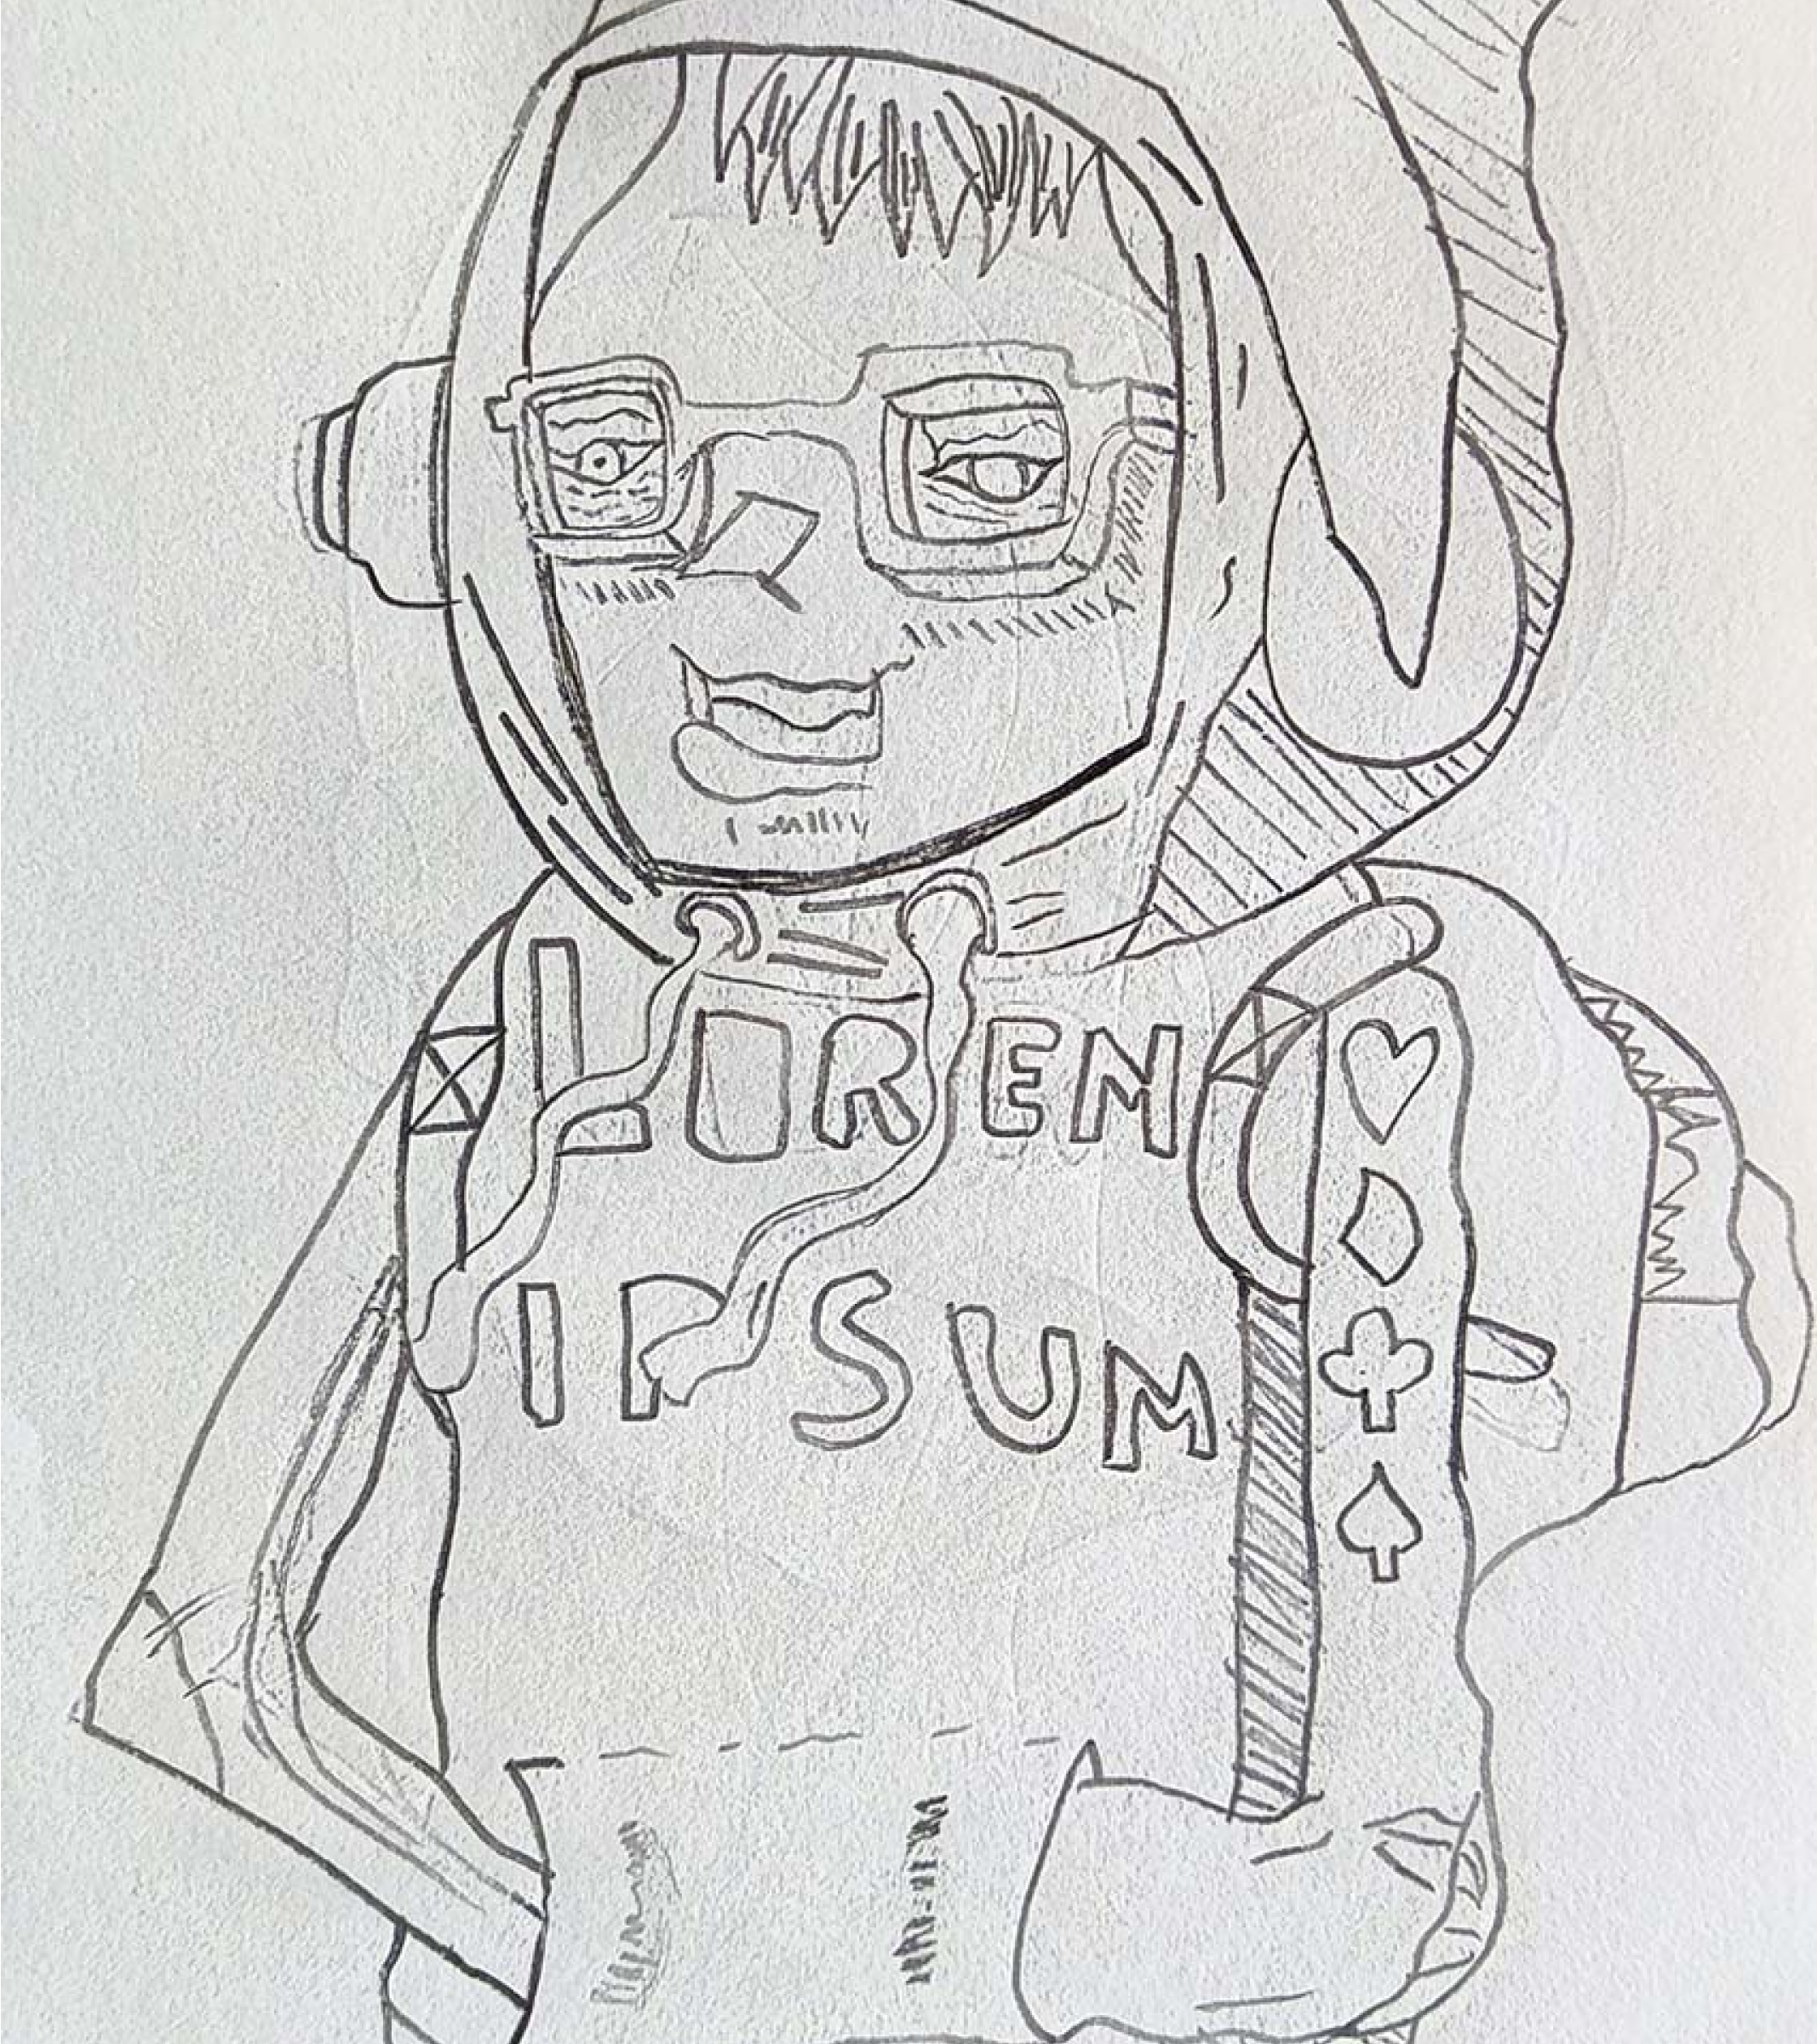 LOREN
IPSUM